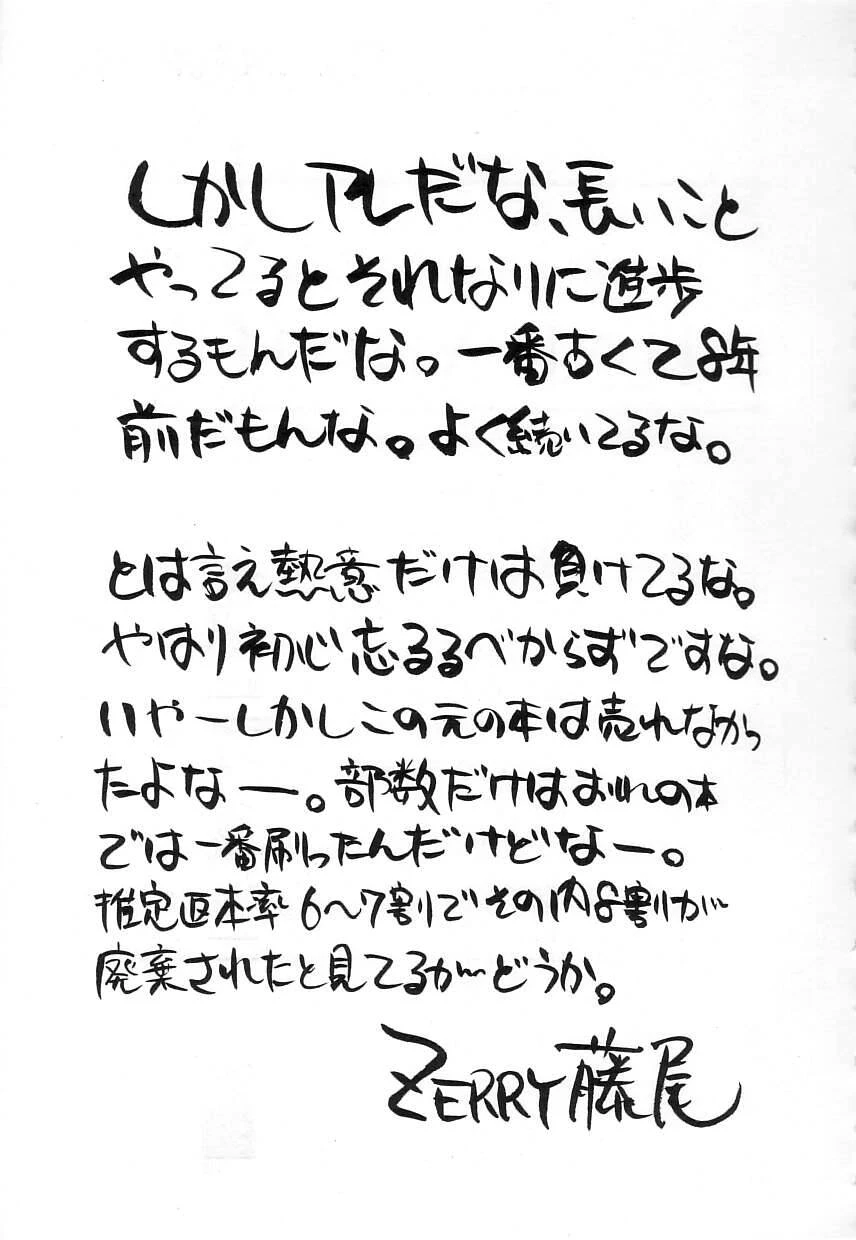 しかしアレだな、長いこと
やってるとそれなりに進歩
するもんだな。一番古くて8年
前だもんな。よく続いてるな。
とは言え熱意だけは負けてるな。
やはり初心忘るるべからずですな。
いやーしかしこの元の本は売れなかっ
たよなー。部数だけはおれの本
では一番刷ったんだけどなー。
推定返本率6〜7割でその内8割が
廃棄されたと見てるが…どうか。
ZERRY藤尾